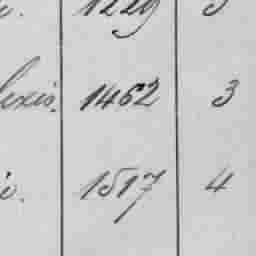 1229
lexis. 1462 3
1517 4